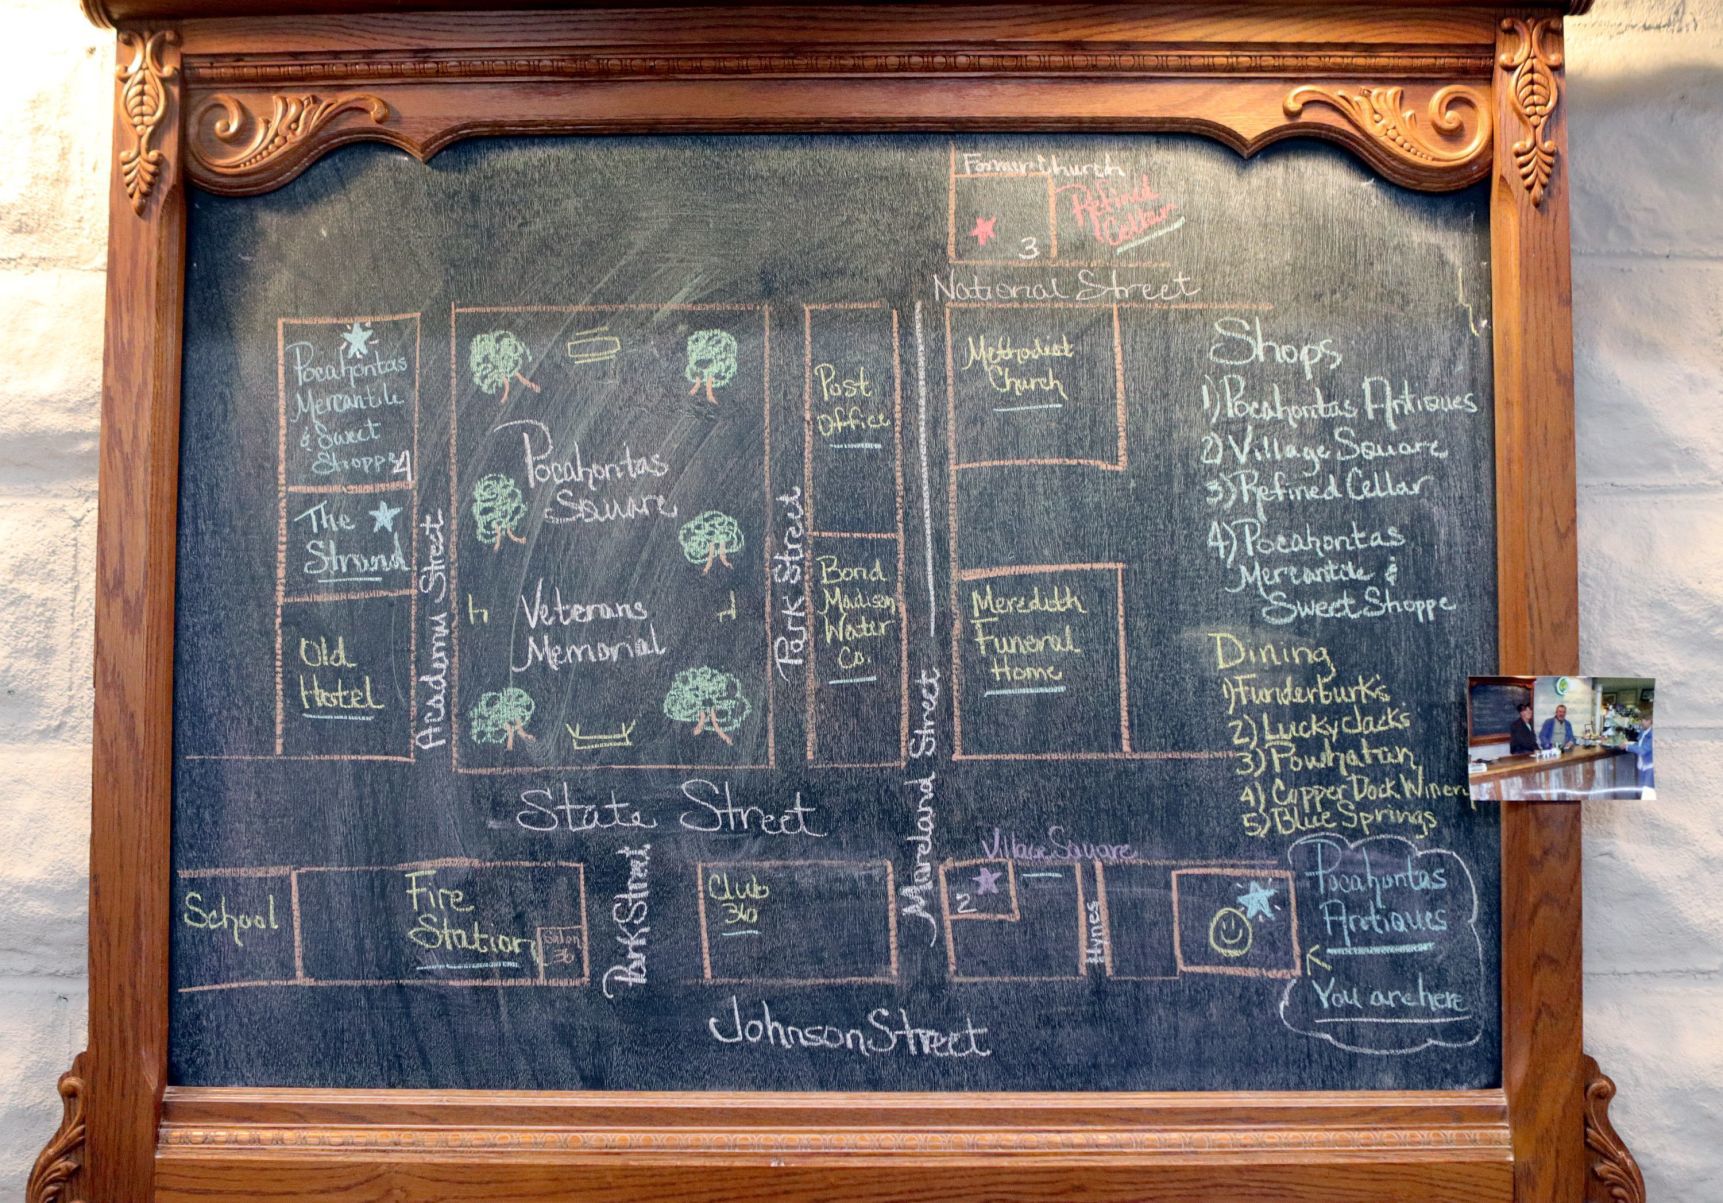 Former Church
Refined
Cellar
3
National Street
Pocahontas
Mercantile
& Sweet
Shoppe
4
The
Strand
Old
Hotel
Academy Street
Pocahontas
Square
Veterans
Memorial
Park Street
Post
Office
Bond
Madison
Water
Co.
Moreland Street
Methodist
Church
Meredith
Funeral
Home
Shops
1) Pocahontas Antiques
2) Village Square
3) Refined Cellar
4) Pocahontas
Mercantile &
Sweet Shoppe
Dining
1) Funderburk's
2) Lucky Jack's
3) Powhatan
4) Copper Dock Winery
5) Blue Springs
State Street
School
Fire
Station
Salon
36
Park Street
Club
360
Village Square
2
Hynes
Pocahontas
Antiques
You are here
Johnson Street